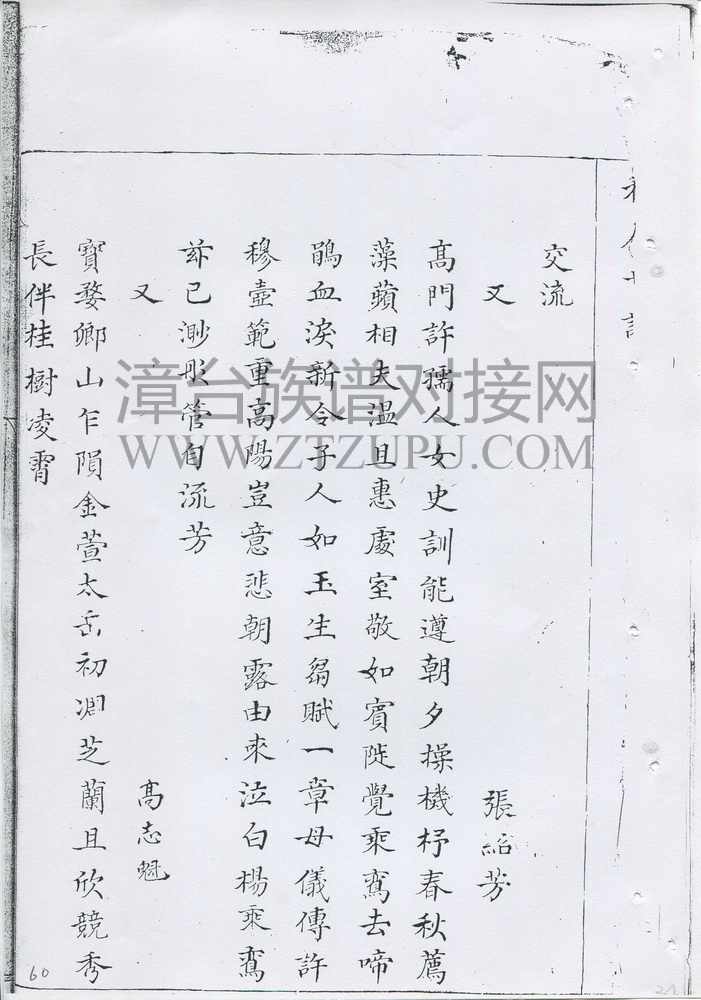 交流
又 張紹芳
高門許孺人女史訓能遵朝夕操機杼春秋薦
藻蘋相夫溫且惠處室敬如賓陡覺乘鸞去啼
鵑血淚新令子人如玉生芻賦一章母儀傳許
穆壼範重高陽豈意悲朝露由來泣白楊乘鸞
茲已渺彤管自流芳
又 高志魁
寶婺鄉山乍隕金萱太岳初凋芝蘭且欣競秀
長伴桂樹凌霄
漳台族谱对接网
WWW.ZTZUPU.COM
60